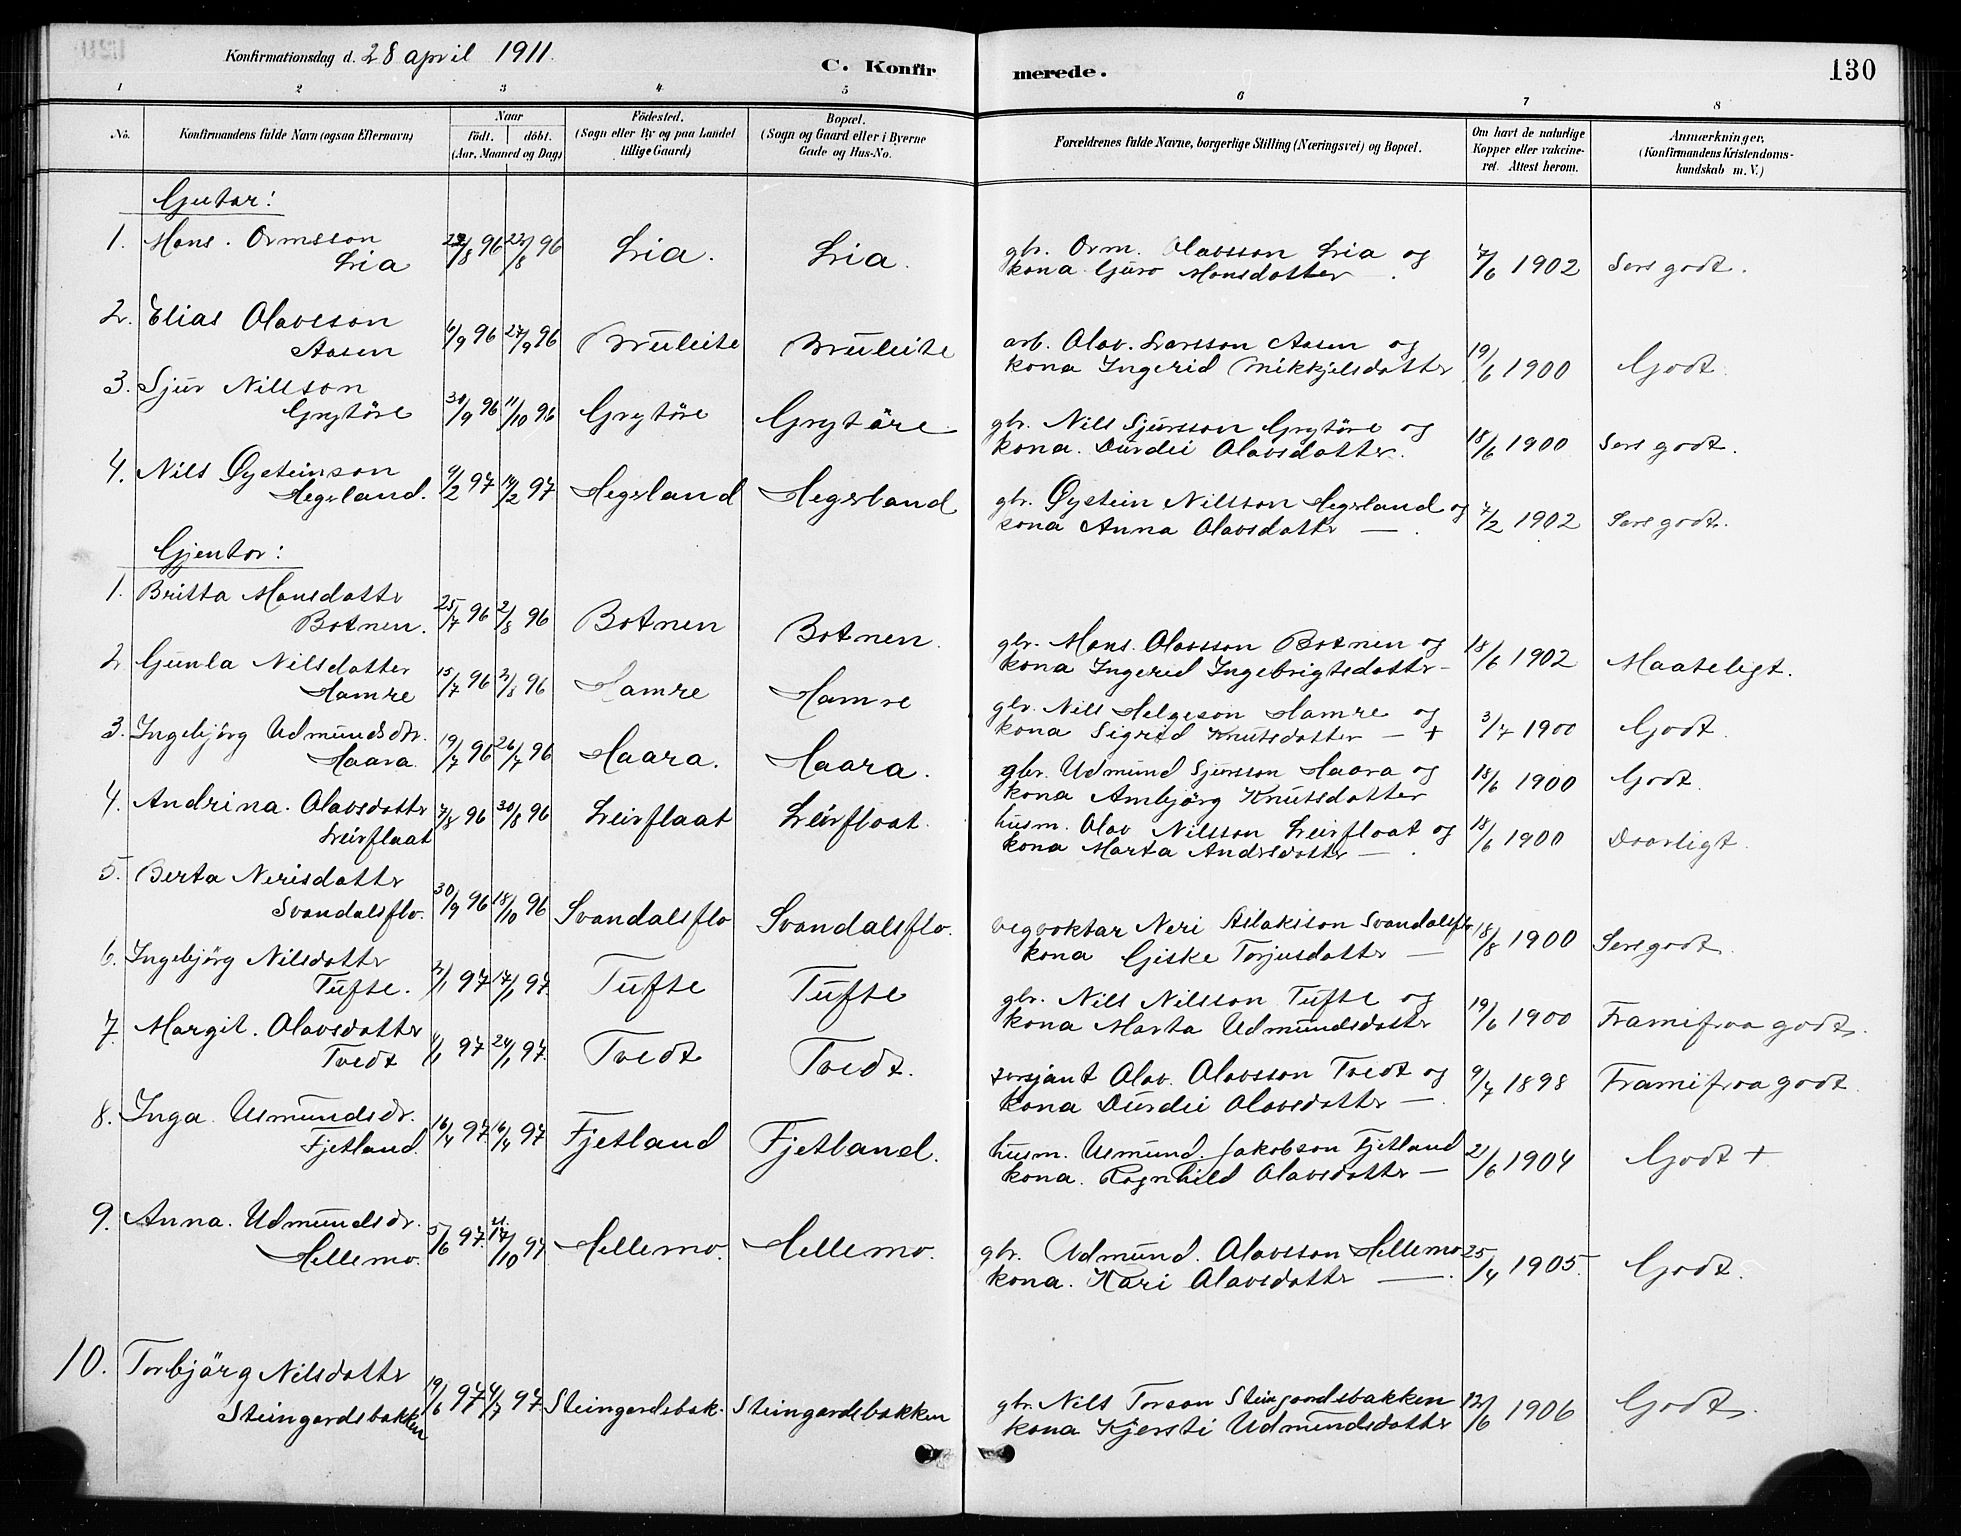 Konfirmationsdag d. 28 april 1911.
C. Konfirmerede.
130
1 2 3 4 5 6 7 8
No.
Konfirmandens fulde Navn (ogsaa Efternavn)
Naar
födt. döbt.
(Aar, Maaned og Dag)
Födested.
(Sogn eller By og paa Landet
tillige Gaard)
Bopæl.
(Sogn og Gaard eller i Byerne
Gade og Hus-No.
Forældrenes fulde Navne, borgerlige Stilling (Næringsvei) og Bopæl.
Om havt de naturlige
Kopper eller vakcine-
ret. Attest herom.
Anmærkninger,
(Konfirmandens Kristendoms-
kundskab m. V.)
Gutar:
1. Mons. Ormsson
Lia 22/8 96 Lia. Lia. gbr. Orm. Olavsson Lia og
kona Guro Monsdotter — . 7/6 1902 Sers godt.
2. Elias Olavsson
Aasen 6/9 96 27/9 96 Bruleite Bruleite arb. Olav. Larsson Aasen og
kona Ingerid Mikkjelsdotter 19/6 1900 Godt.
3. Sjur Nilsson
Grytöre 30/9 96 11/10 96 Grytöre Grytöre gbr. Nils Sjursson Grytöre og
kona. Durdei Olavsdotter. 18/6 1900 Sers godt.
4. Nils Øysteinson
Hegrland. 9/2 97 14/2 97 Hegrland Hegrland gbr. Øystein Nilsson Hegrland og
kona Anna Olavsdottr — . 7/2 1902 Sers godt.
Gjentor:
1. Britta Monsdottr
Botnen. 25/7 96 2/8 96 Botnen Botnen. gbr. Mons. Olavsson Botnen og
kona Ingerid Ingebrigtsdottr — 18/6 1902 Maateligt.
2. Gunla Nilsdotter
Hamre 15/7 96 2/8 96 Hamre Hamre gbr. Nils Helgeson Hamre og
kona Sigrid Knutsdotter — + 3/7 1900 Godt.
3. Ingebjörg Udmundsdr.
Haara. 19/7 96 26/7 96 Haara. Haara. gbr. Udmund Sjursson Haara og
kona Ambjörg Knutsdotter 18/6 1900 Godt.
4. Andrina. Olavsdottr
Leirflaat 7/8 96 30/8 96 Leirflaat Leirfloat. husm. Olav Nilsson Leirfloat og
kona Marta Andrsdottr — . 18/6 1900 Daarligt.
5. Berta Nerisdottr
Svandalsflo. 30/9 96 18/10 96 Svandalsflo Svandalsflo. vegvoktar Neri Aslakson Svandalsflo
kona Giske Torjusdotter — 18/8 1900 Sers godt
6. Ingebjörg Nilsdottr
Tufte. 2/1 97 17/1 97. Tufte Tufte gbr. Nils Nilsson Tufte og
kona Marta Udmundsdottr 19/6 1900 Framifraa godt.
7. Margit. Olavsdottr
Tvedt 1/1 97 24/1 97. Tvedt Tvedt. sersjant Olav. Olavsson Tvedt og
kona Durdei Olavsdotter — . 9/7 1898 Framifraa godt
8. Inga. Usmundsdr.
Fjetland. 16/4 97 16/4 97 Fjetland Fjetland. husm. Usmund. Jakobson Fjetland
kona. Rognhild Olavsdotter — 2/6 1904 Godt +
9. Anna. Udmundsdr.
Hellemo. 5/6 97. 17/10 97. Hellemo. Hellemo. gbr. Udmund. Olavsson Hellemo
kona. Kari Olavsdottr — . 25/4 1905. Godt.
10. Torbjörg Nilsdottr
Steingardsbakken 19/6 97 4/7 97 Steingardsbak. Steingardsbakken gbr. Nils Torson Steingardsbakken
kona Kjersti Udmundsdottr 12/6 1906 Godt.